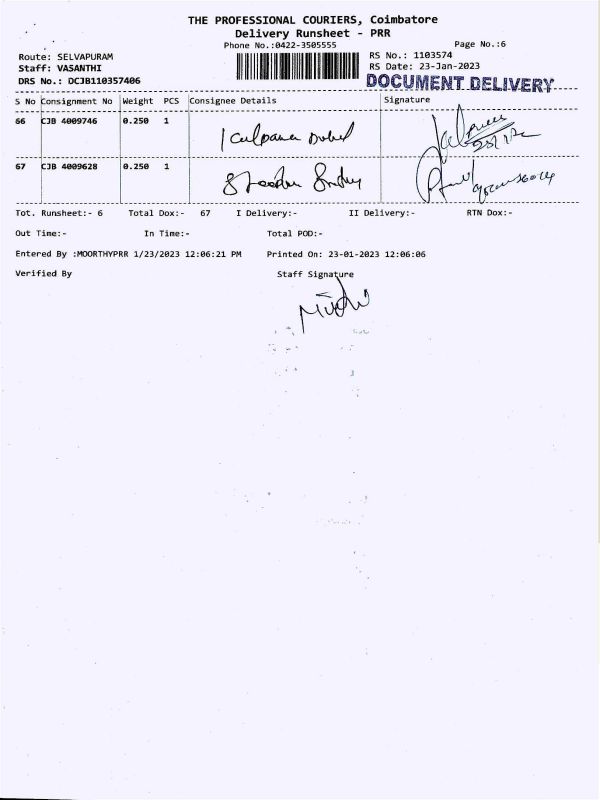 THE PROFESSIONAL COURIERS, Coimbatore
Delivery Runsheet - PRR
Phone No.:0422-3505555 Page No.:6
Route: SELVAPURAM RS No.: 1103574
Staff: VASANTHI RS Date: 23-Jan-2023
DRS No.: DCJB110357406 DOCUMENT DELIVERY
S No Consignment No Weight PCS Consignee Details Signature
66 CJB 4009746 0.250 1
67 CJB 4009628 0.250 1
Tot. Runsheet:- 6 Total Dox:- 67 I Delivery:- II Delivery:- RTN Dox:-
Out Time:- In Time:- Total POD:-
Entered By :MOORTHYPRR 1/23/2023 12:06:21 PM Printed On: 23-01-2023 12:06:06
Verified By Staff Signature